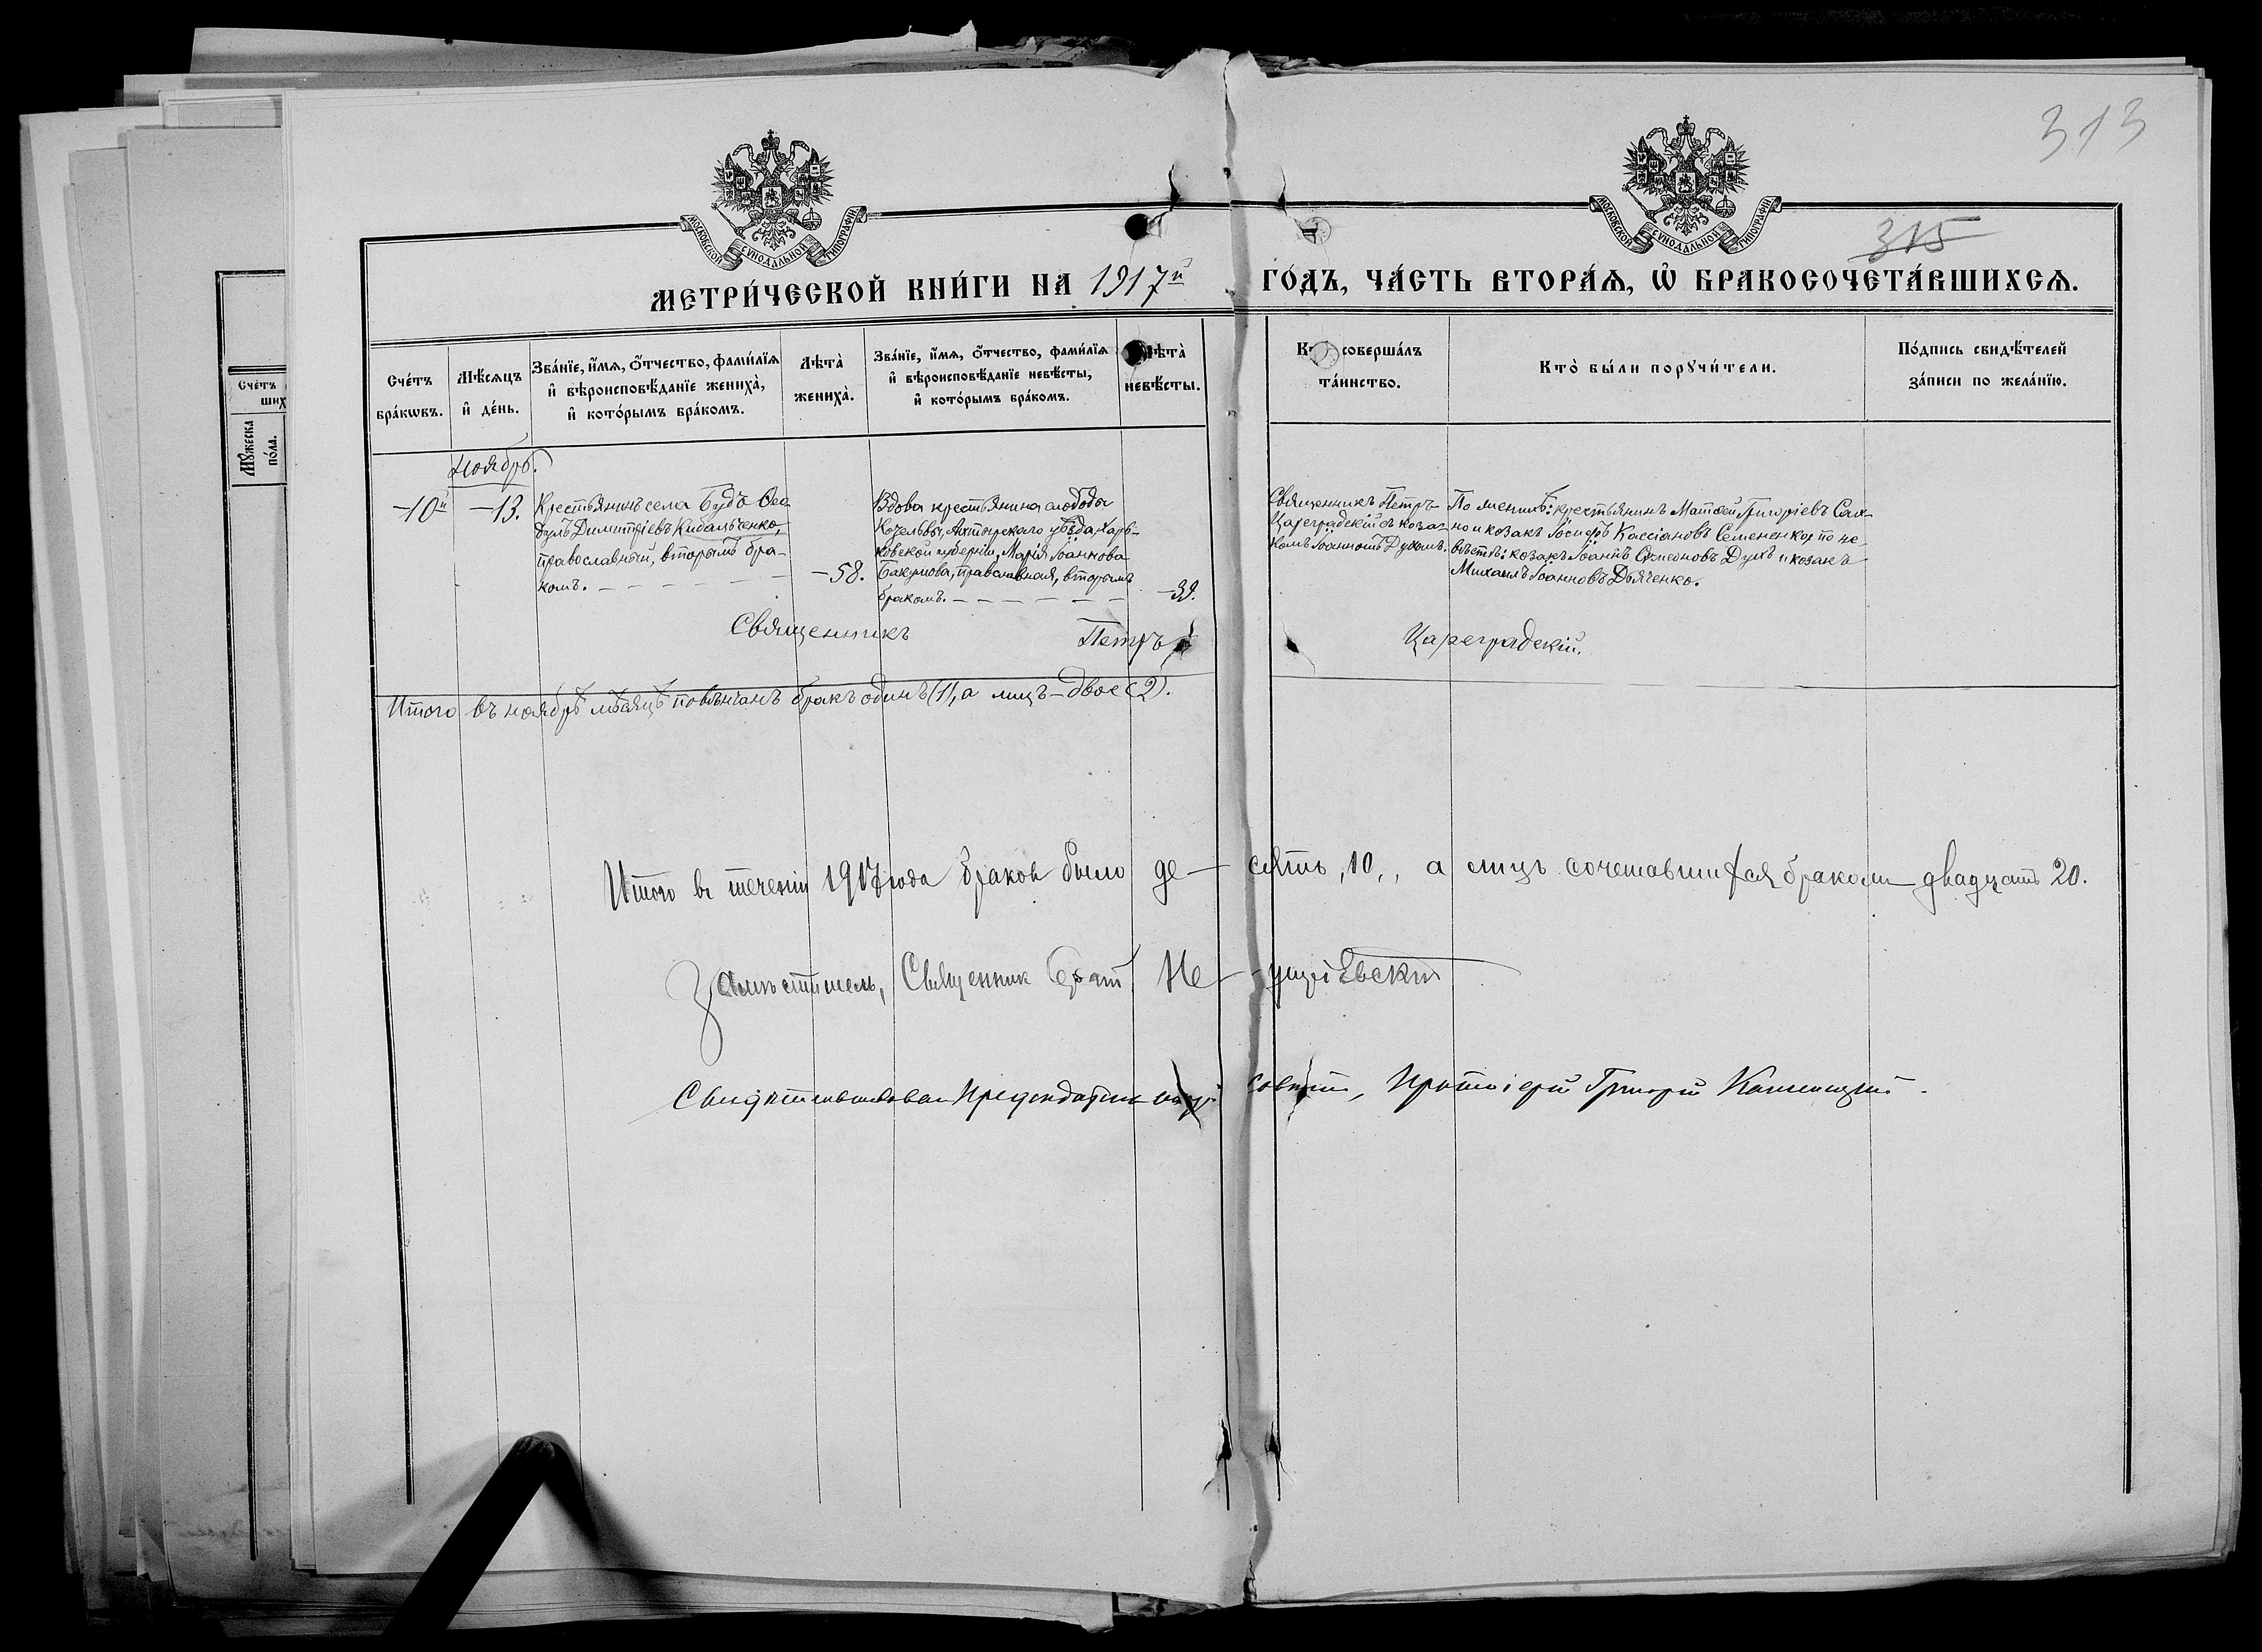 313
315
МОСКОВСКОЙ СѴНОДАЛЬНОЙ ТИПОГРАФІИ
МОСКОВСКОЙ СѴНОДАЛЬНОЙ ТИПОГРАФІИ
МЕТРИ́ЧЕСКОЙ КНИ́ГИ НА 1917й ГО́ДЪ, ЧА́СТЬ ВТОРА́Ѧ, Ѡ҆ БРАКОСОЧЕТА́ВШИХСѦ.
Сче́тъ
ших
Мꙋжеска
по́ла.
Сче́тъ
бра́кѡвъ.
Мѣ́сѧцъ
и҆ де́нь.
Зва́нїе, и҆́мѧ, ѻ҆́тчество, фами́лїѧ
и҆ вѣроисповѣ́данїе женихà,
и҆ кото́рымъ бра́комъ.
Лѣта̀
женихà.
Зва́нїе, и҆́мѧ, ѻ҆́тчество, фами́лїѧ
и҆ вѣроисповѣ́данїе невѣ́сты,
и҆ кото́рымъ бра́комъ.
Лѣта̀
невѣ́сты.
совершáлъ
та́инство.
Кто̀ бы́ли порꙋчи́тели.
По́дпись свидѣ́телей
за́писи по жела́нїю.
Ноябрь.
-10й
-13.
Крестьянинъ села Будъ Ѳео-
дулъ Димитріевъ Кибальченко,
православный, вторымъ бра-
комъ.
-58.
Вдова крестьянина слободы
Козельвы, Ахтырскаго уѣзда, Харь-
ковской губерніи, Марія Іоаннова
Бакумова, православная, вторымъ
бракомъ.
-39.
Священникъ Петръ
Цареградскій съ псалом-
Іоанномъ Духомъ.
По женихѣ: крестьянинъ Матѳей Григоріевъ Сах-
но и козакъ Іосифъ Кассіановъ Семененко; по не-
вѣстѣ: козакъ Іоаннъ Симеоновъ Духъ и козакъ
Михаилъ Іоанновъ Дьяченко.
Священникъ Петръ Цареградскій.
Итого въ ноябрѣ мѣсяцѣ повѣнчанъ бракъ одинъ (1), а лицъ - двое (2).
Итого въ теченіи 1917 года браков было де- сять, 10,, а лицъ сочетавшихся браком двадцать 20.
Заместитель, Священник
Свидетельствовал Председатель совета, Протоіерей Григорій